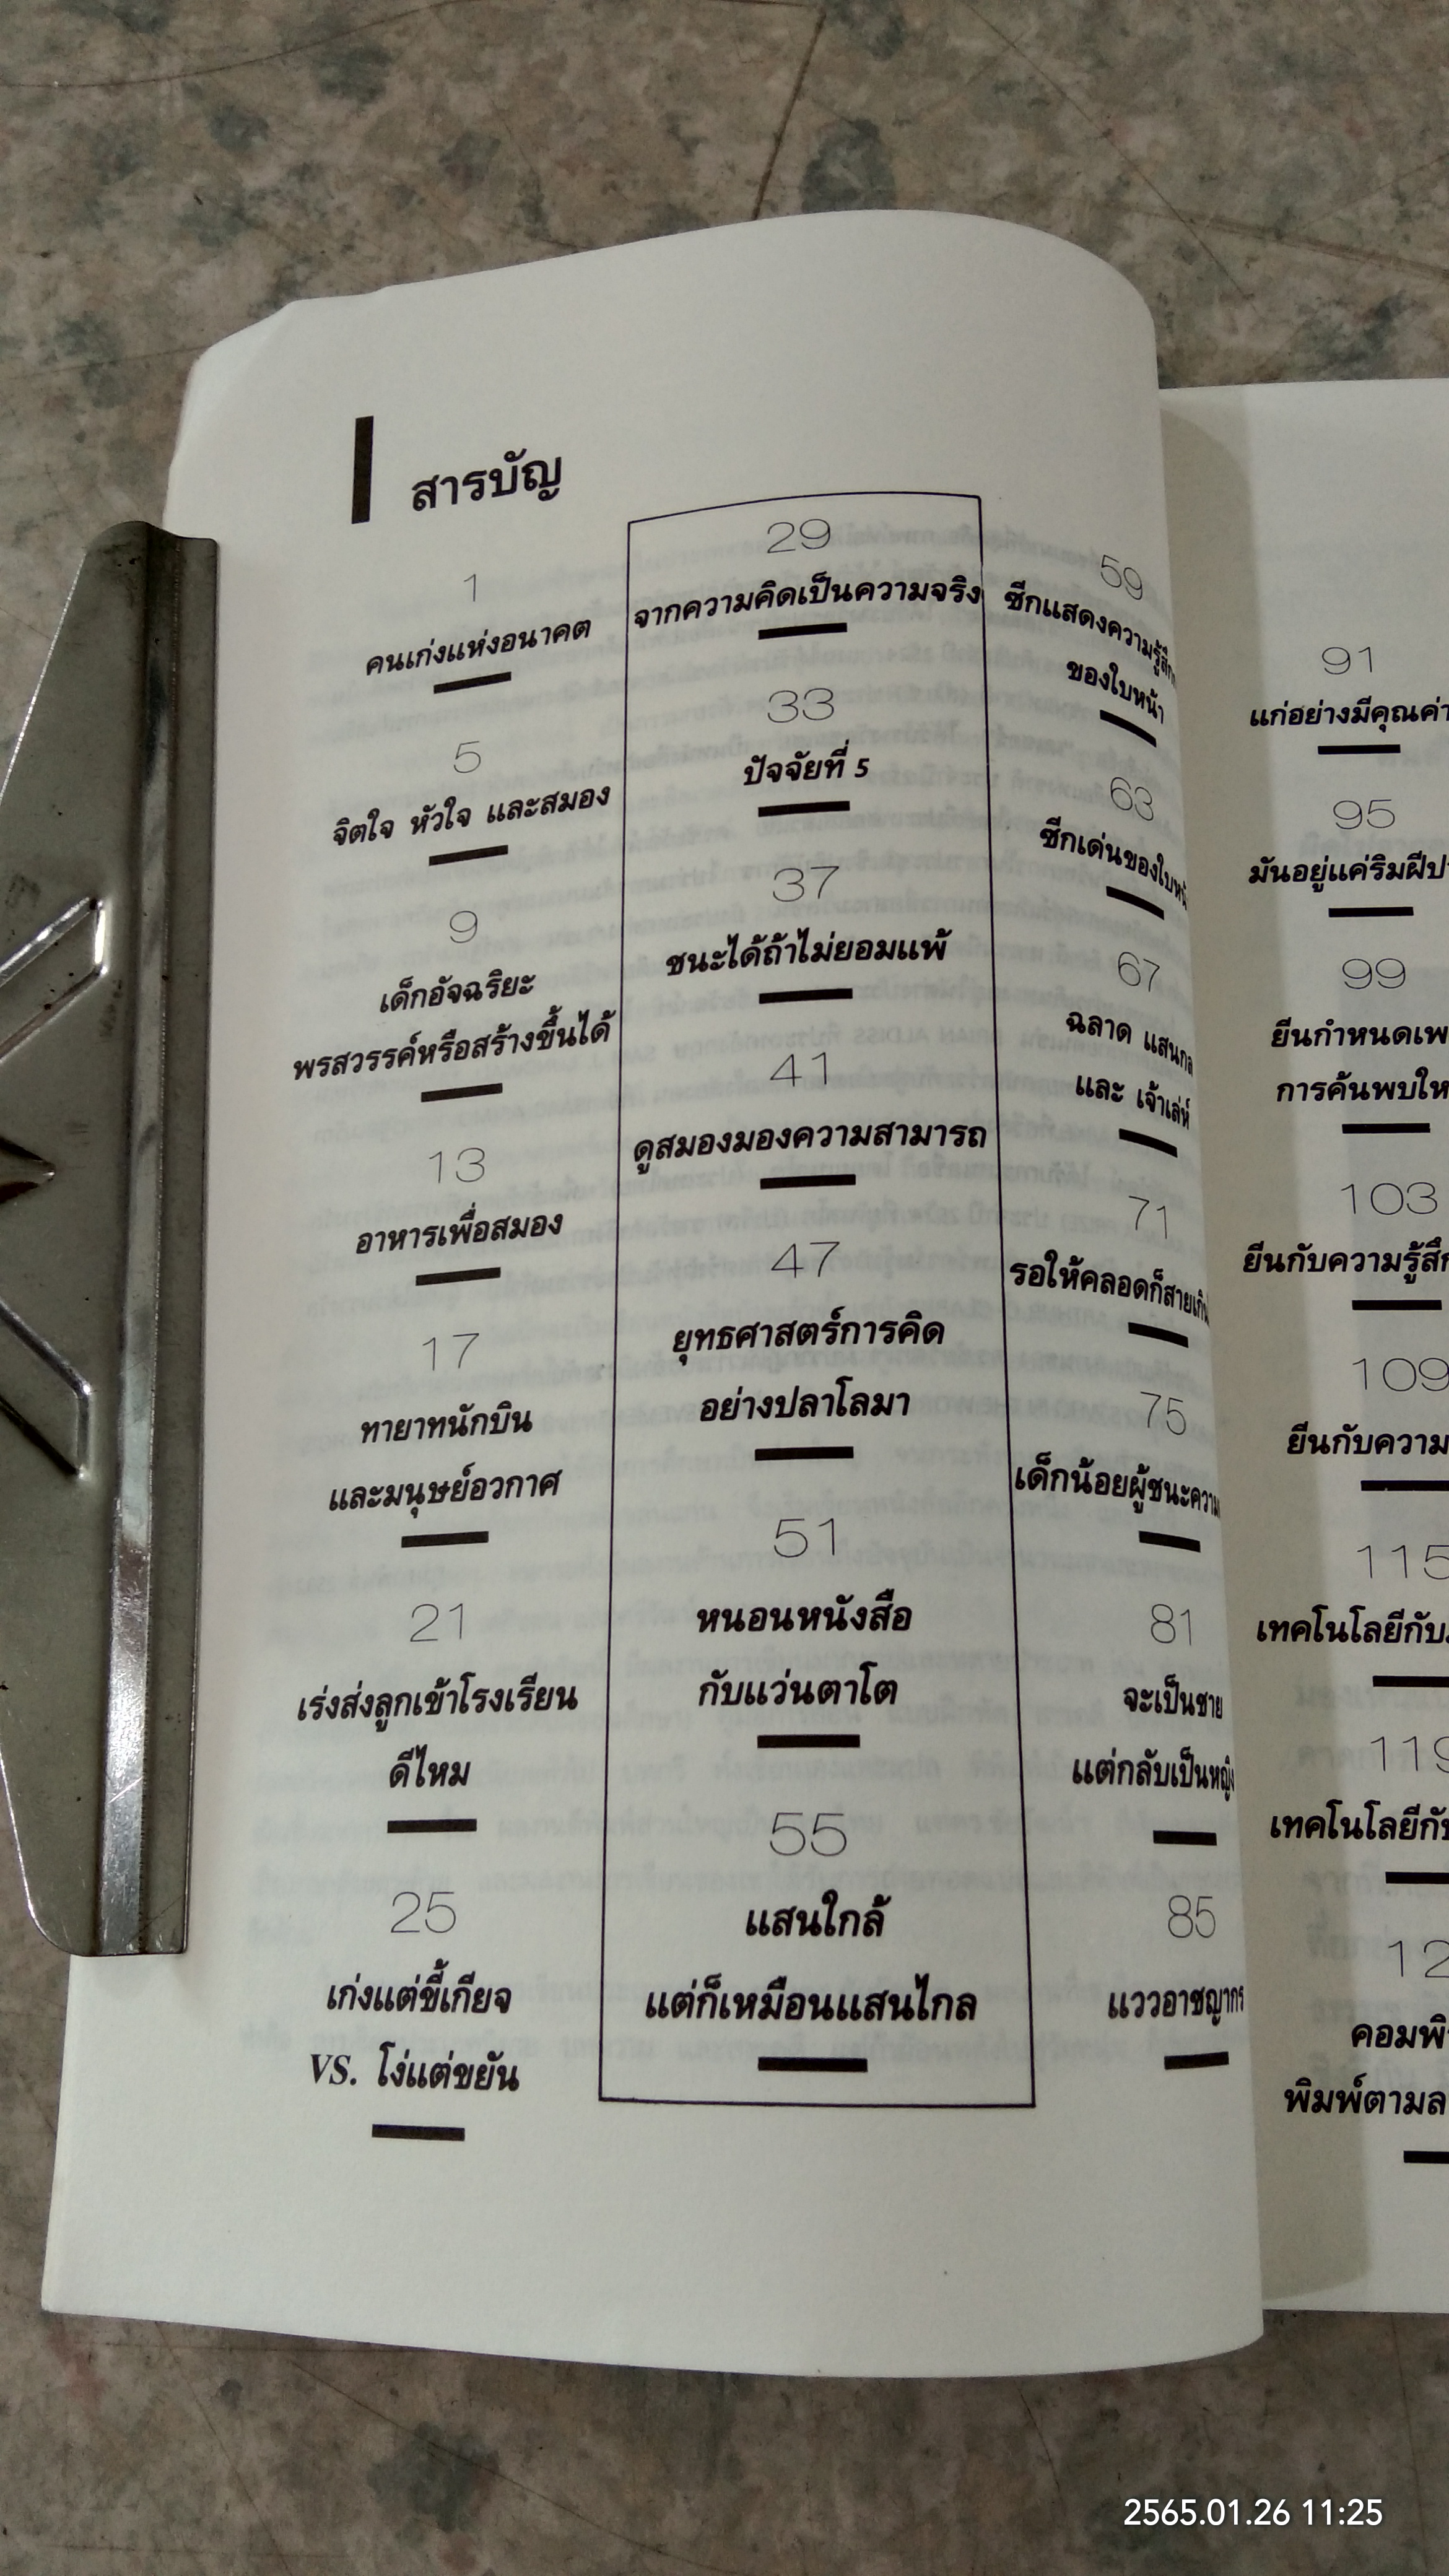 สารบัญ
1
คนเก่งแห่งอนาคต
5
จิตใจ หัวใจ และสมอง
9
เด็กอัจฉริยะ
พรสวรรค์หรือสร้างขึ้นได้
13
อาหารเพื่อสมอง
17
ทายาทนักบิน
และมนุษย์อวกาศ
21
เร่งส่งลูกเข้าโรงเรียน
ดีไหม
25
เก่งแต่ขี้เกียจ
VS. โง่แต่ขยัน
29
จากความคิดเป็นความจริง
33
ปัจจัยที่ 5
37
ชนะได้ถ้าไม่ยอมแพ้
41
ดูสมองมองความสามารถ
47
ยุทธศาสตร์การคิด
อย่างปลาโลมา
51
หนอนหนังสือ
กับแว่นตาโต
55
แสนใกล้
แต่ก็เหมือนแสนไกล
59
ซีกแสดงความรู้สึก
ของใบหน้า
63
ซีกเด่นของใบหน้
67
ฉลาด แสนกล
และ เจ้าเล่ห์
71
รอให้คลอดก็สายเกิน
75
เด็กน้อยผู้ชนะความ
81
จะเป็นชาย
แต่กลับเป็นหญิง
85
แววอาชญากร
91
แก่อย่างมีคุณค่า
95
มันอยู่แค่ริมฝีป
99
ยีนกำหนดเพ
การค้นพบให
103
ยีนกับความรู้สึก
109
ยีนกับความ
115
เทคโนโลยีกับ
119
เทคโนโลยีกับ
12
คอมพิ
พิมพ์ตามล
2565.01.26 11:25